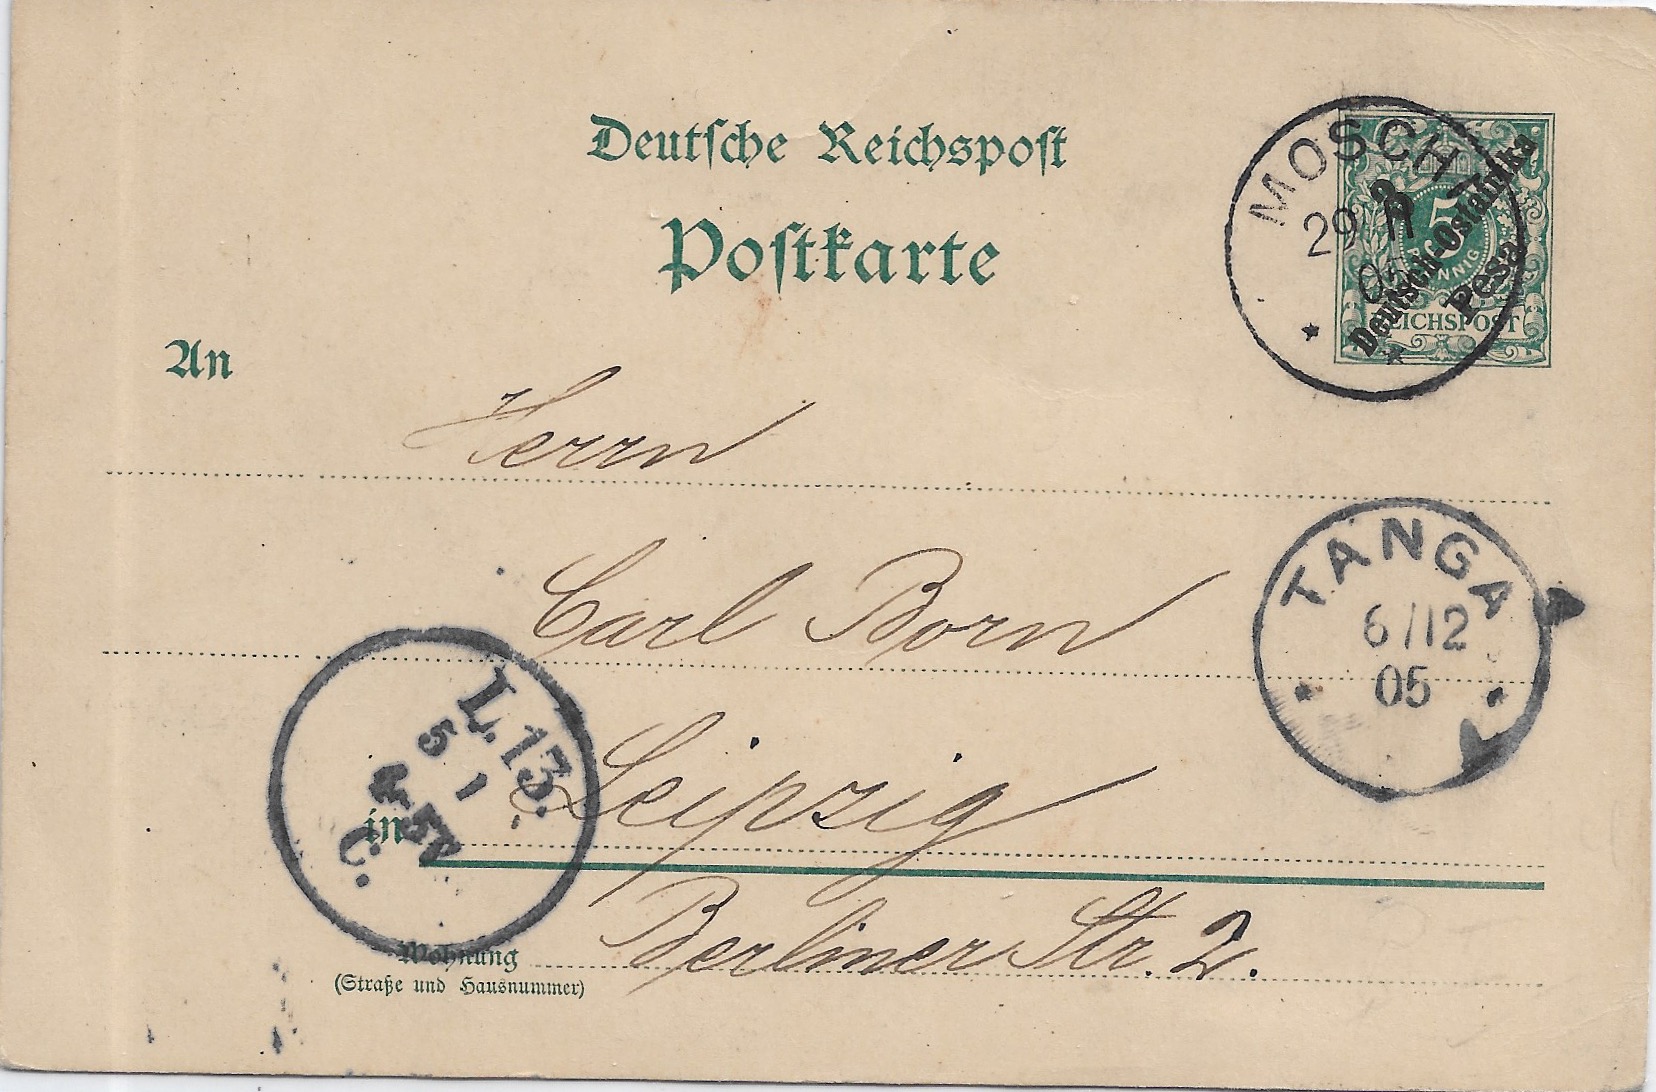 Deutsche Reichspost
Postkarte
MOSCHI
29 11
05
3
5
PFENNIG
REICHSPOST
Deutsch-Ostafrika
Pesa
An
Herrn
Carl Born
in Leipzig
Wohnung Berliner Str. 2.
(Straße und Hausnummer)
TANGA
6/12
05
L. 13.
5 1
C.